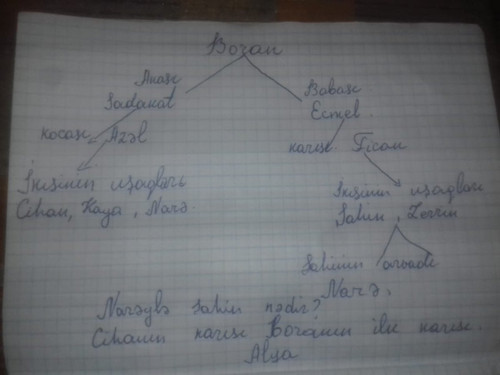 Bozan
Anası
Sadakat
Babası
Ecmel
Kocası Azəl
karısı Fican
İkisinin uşaqları
Cihan, Kaya, Narə
İkisinin uşaqları
Sahin, Zerrin
Sahinin arvadı
Narə.
Narəylə Sahin nədir?
Cihanın karısı Boranın ilk karısı.
Alya